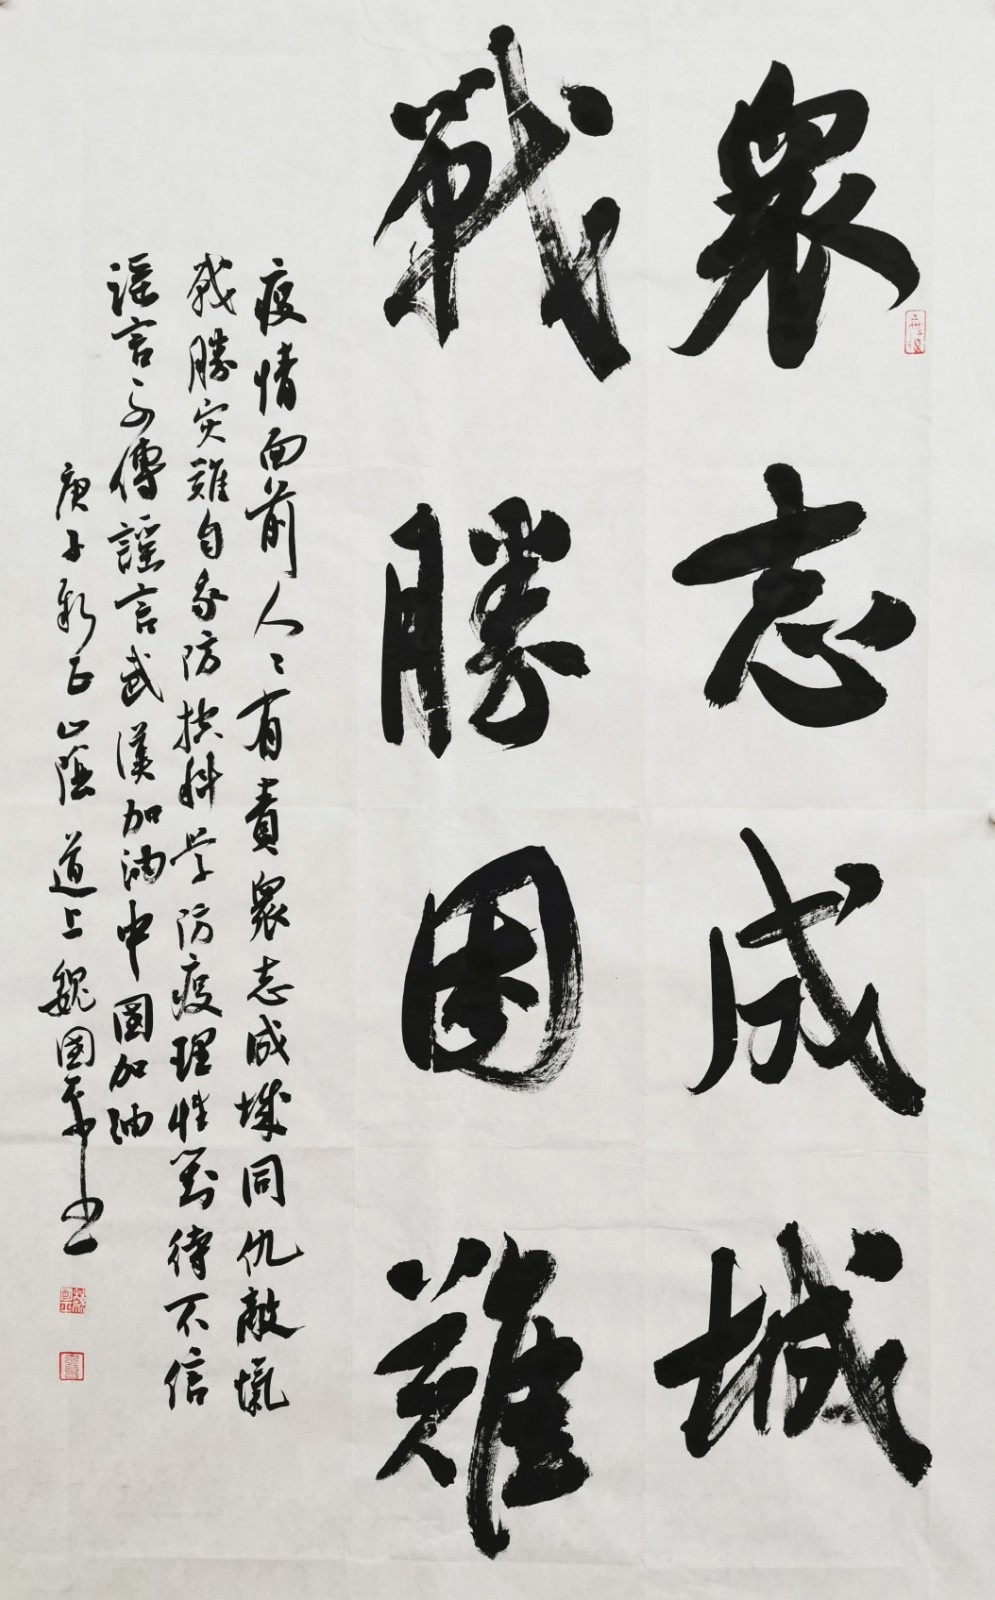 衆志成城
戰勝困難
疫情面前人人有責衆志成城同仇敵愾
战勝灾難自身防控科学防疫理性對待不信
謡言不傳謡言武漢加油中國加油
庚子新正山陰道上魏国平书